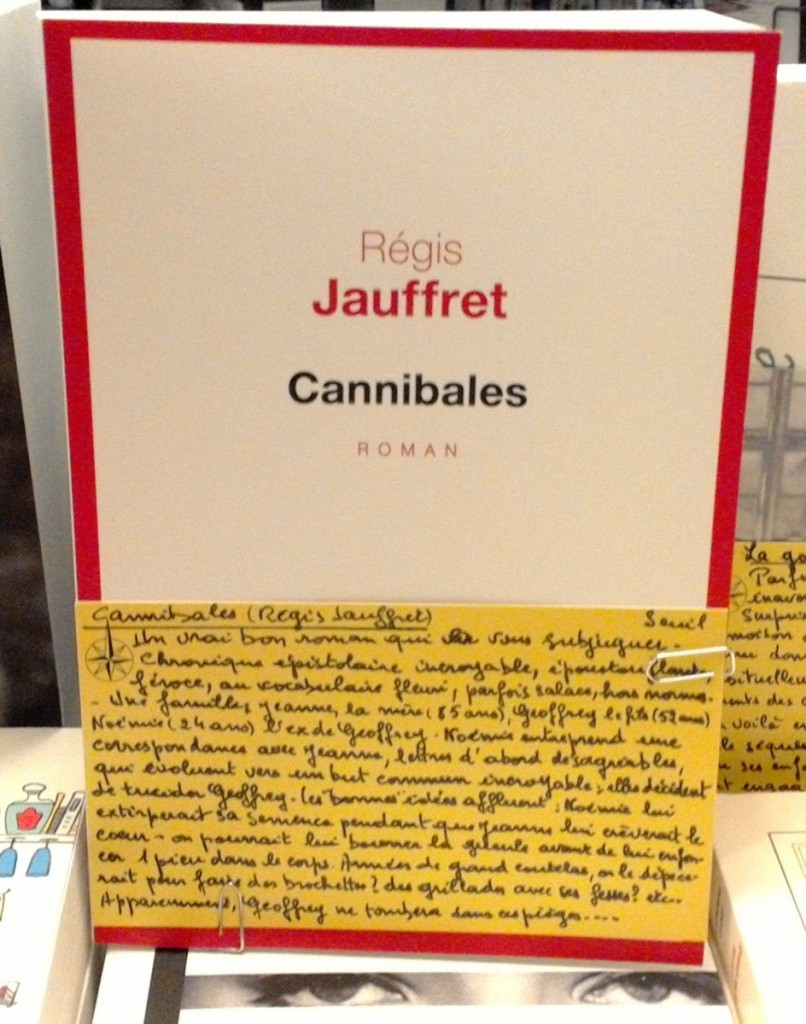 Régis
Jauffret
Cannibales
ROMAN
Cannibales (Régis Jauffret) Seuil
Un vrai bon roman qui va vous subjuguer.
Chronique épistolaire incroyable, époustouflante,
féroce, au vocabulaire fleuri, parfois salace, hors normes.
- Une famille, Jeanne, la mère (85 ans), Geoffrey le fils (52 ans)
Noémie (24 ans) l'ex de Geoffrey. Noémie entreprend une
correspondance avec Jeanne, lettres d'abord désagréables,
qui évoluent vers un but commun incroyable ; elles décident
de trucider Geoffrey. Les "bonnes" idées affluent : Noémie lui
extirperait sa semence pendant que Jeanne lui crèverait le
coeur - on pourrait lui bourrer la gueule avant de lui enfon-
cer 1 pieu dans le corps. Armées de grand coutelas, on le dépèce-
rait pour faire des brochettes ? des grillades avec ses fesses ? etc...
Apparemment, Geoffrey ne tombera dans ces pièges....
La go
Parf
inavo
Surpri
moison
du don
bituelle
ents des
voilà e
le séque
ses enf
engag